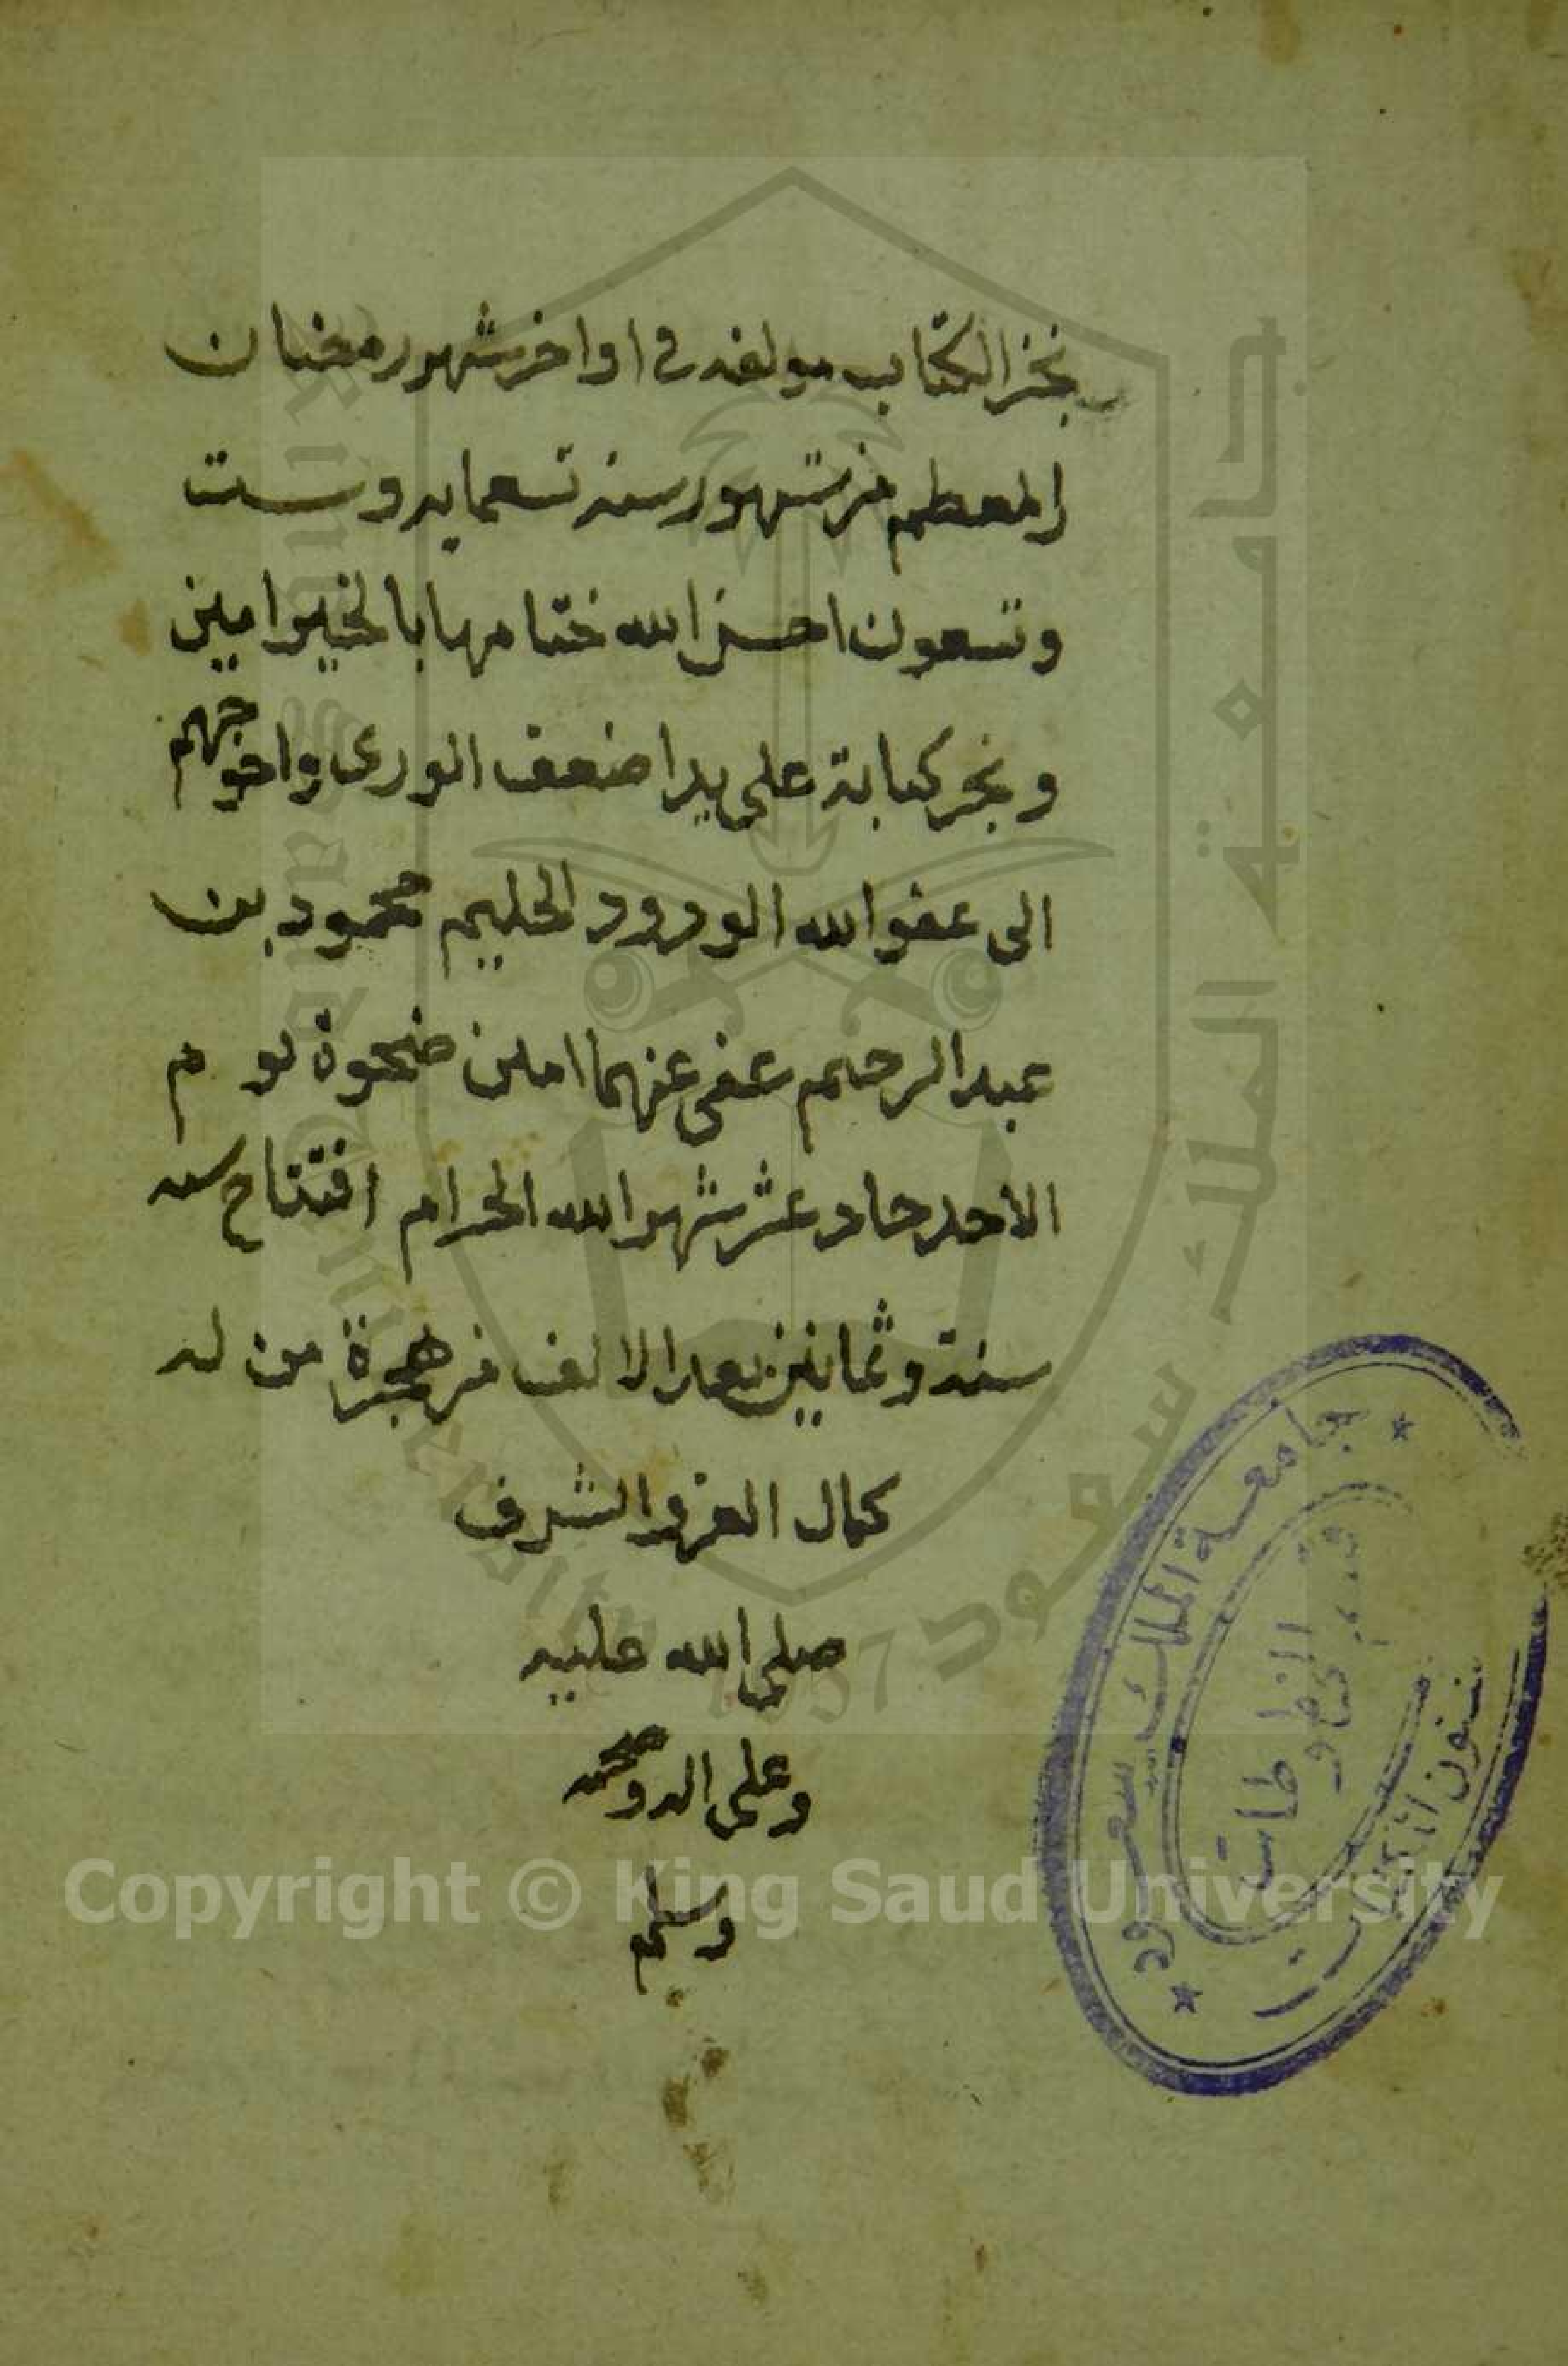 نجز الكتاب مولفه في اواخر شهور رمضان
المعظم من شهور سنه تسعمايه وست
وتسعون احسن الله ختامها بالخير امين
ونجز كتابة على يد اضعف الورى واحوجهم
الى عفو الله الودود الحليم محمود بن
عبد الرحيم عفى عنهما امين ضحوة يوم
الاحد حاد عشر شهر الله الحرام افتتاح سنه
ستة وثمانين بعد الالف من هجرة من له
كمال العز والشرف
صلى الله عليه
وعلى اله وصحبه
وسلم
جامعة الملك سعود
قسم المخطوطات
شئون المكتبات
جامعة الملك سعود
King Saud University
1957
Copyright © King Saud University